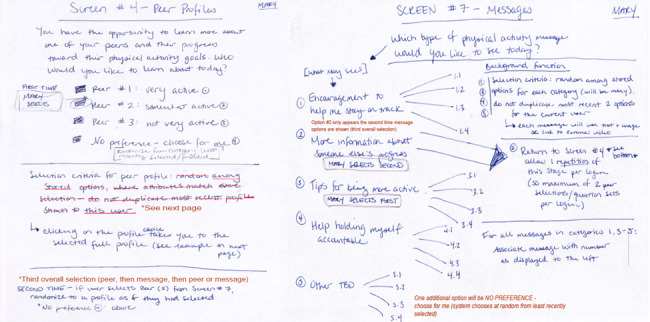 SCREEN #4 - PEER PROFILES
MARY
You have the opportunity to learn more about
one of your peers and their progress
toward their physical activity goals. Who
would you like to learn about today?
FIRST TIME
MARY
SELECTS
Peer #1: very active ①
Peer #2: somewhat active ②
Peer #3: not very active ③
No preference - choose for me ④
Selection criteria for peer profile: random among
stored options, where attributes match above
selection - do not duplicate most recent profile
shown to this user. *See next
page
↳ clicking on the profile choice takes you to the
selected full profile (see example on next
page)
*Third overall selection (peer, then message, then peer or message)
SECOND TIME - if user selects Peer (2) from Screen #7,
randomize to a profile as if they had selected
"No preference ④" above
SCREEN #7 - MESSAGES
MARY
Which type of physical activity message
would you like to see today?
[What Mary Sees]
① Encouragement to
help me stay on track
1.1
1.2
1.3
1.4
Option #2 only appears the second time message
options are shown (third overall selection)
② More information about
someone else's progress
MARY SELECTS SECOND
③ Tips for being more active
MARY SELECTS FIRST
3.1
3.2
3.3
3.4
④ Help holding myself
accountable
4.1
4.2
4.3
4.4
⑤ Other TBD
5.1
5.2
5.3
5.4
Background function
Selection criteria: random among stored
options for each category (will be many).
do not duplicate most recent 2 options
for the current user
↳ each message will be text + image
or link to external video
② Return to Screen #4
*See
bottom
allow 1 repetition of
this stage per login
(so maximum of 2 peer
selections/question sets
per login)
For all messages in categories 1, 3-5:
Associate message with number
as displayed to the left
One additional option will be NO PREFERENCE -
choose for me (system chooses at random from least recently
selected)